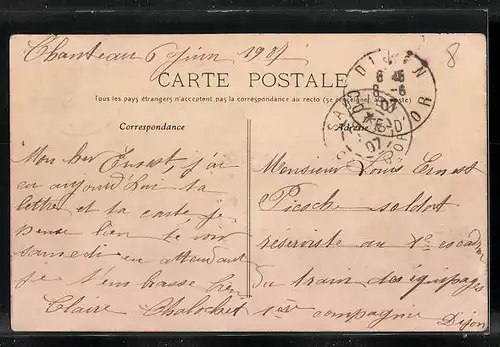 Chanteau 6 Juin 1907
8
CARTE POSTALE
Tous les pays étrangers n'acceptent pas la correspondance au recto (se renseigner à la poste)
Correspondance
Adresse
DIJON
COTE-D'OR
07
Mon cher Ernest, j'ai
eu aujourd'hui ta
lettre et ta carte je
pense bien te voir
samedi en attendant
je t'embrasse bien
Claire
Monsieur Louis Ernest
soldat
réserviste au escadron
du train des équipages
1ère compagnie
Dijon